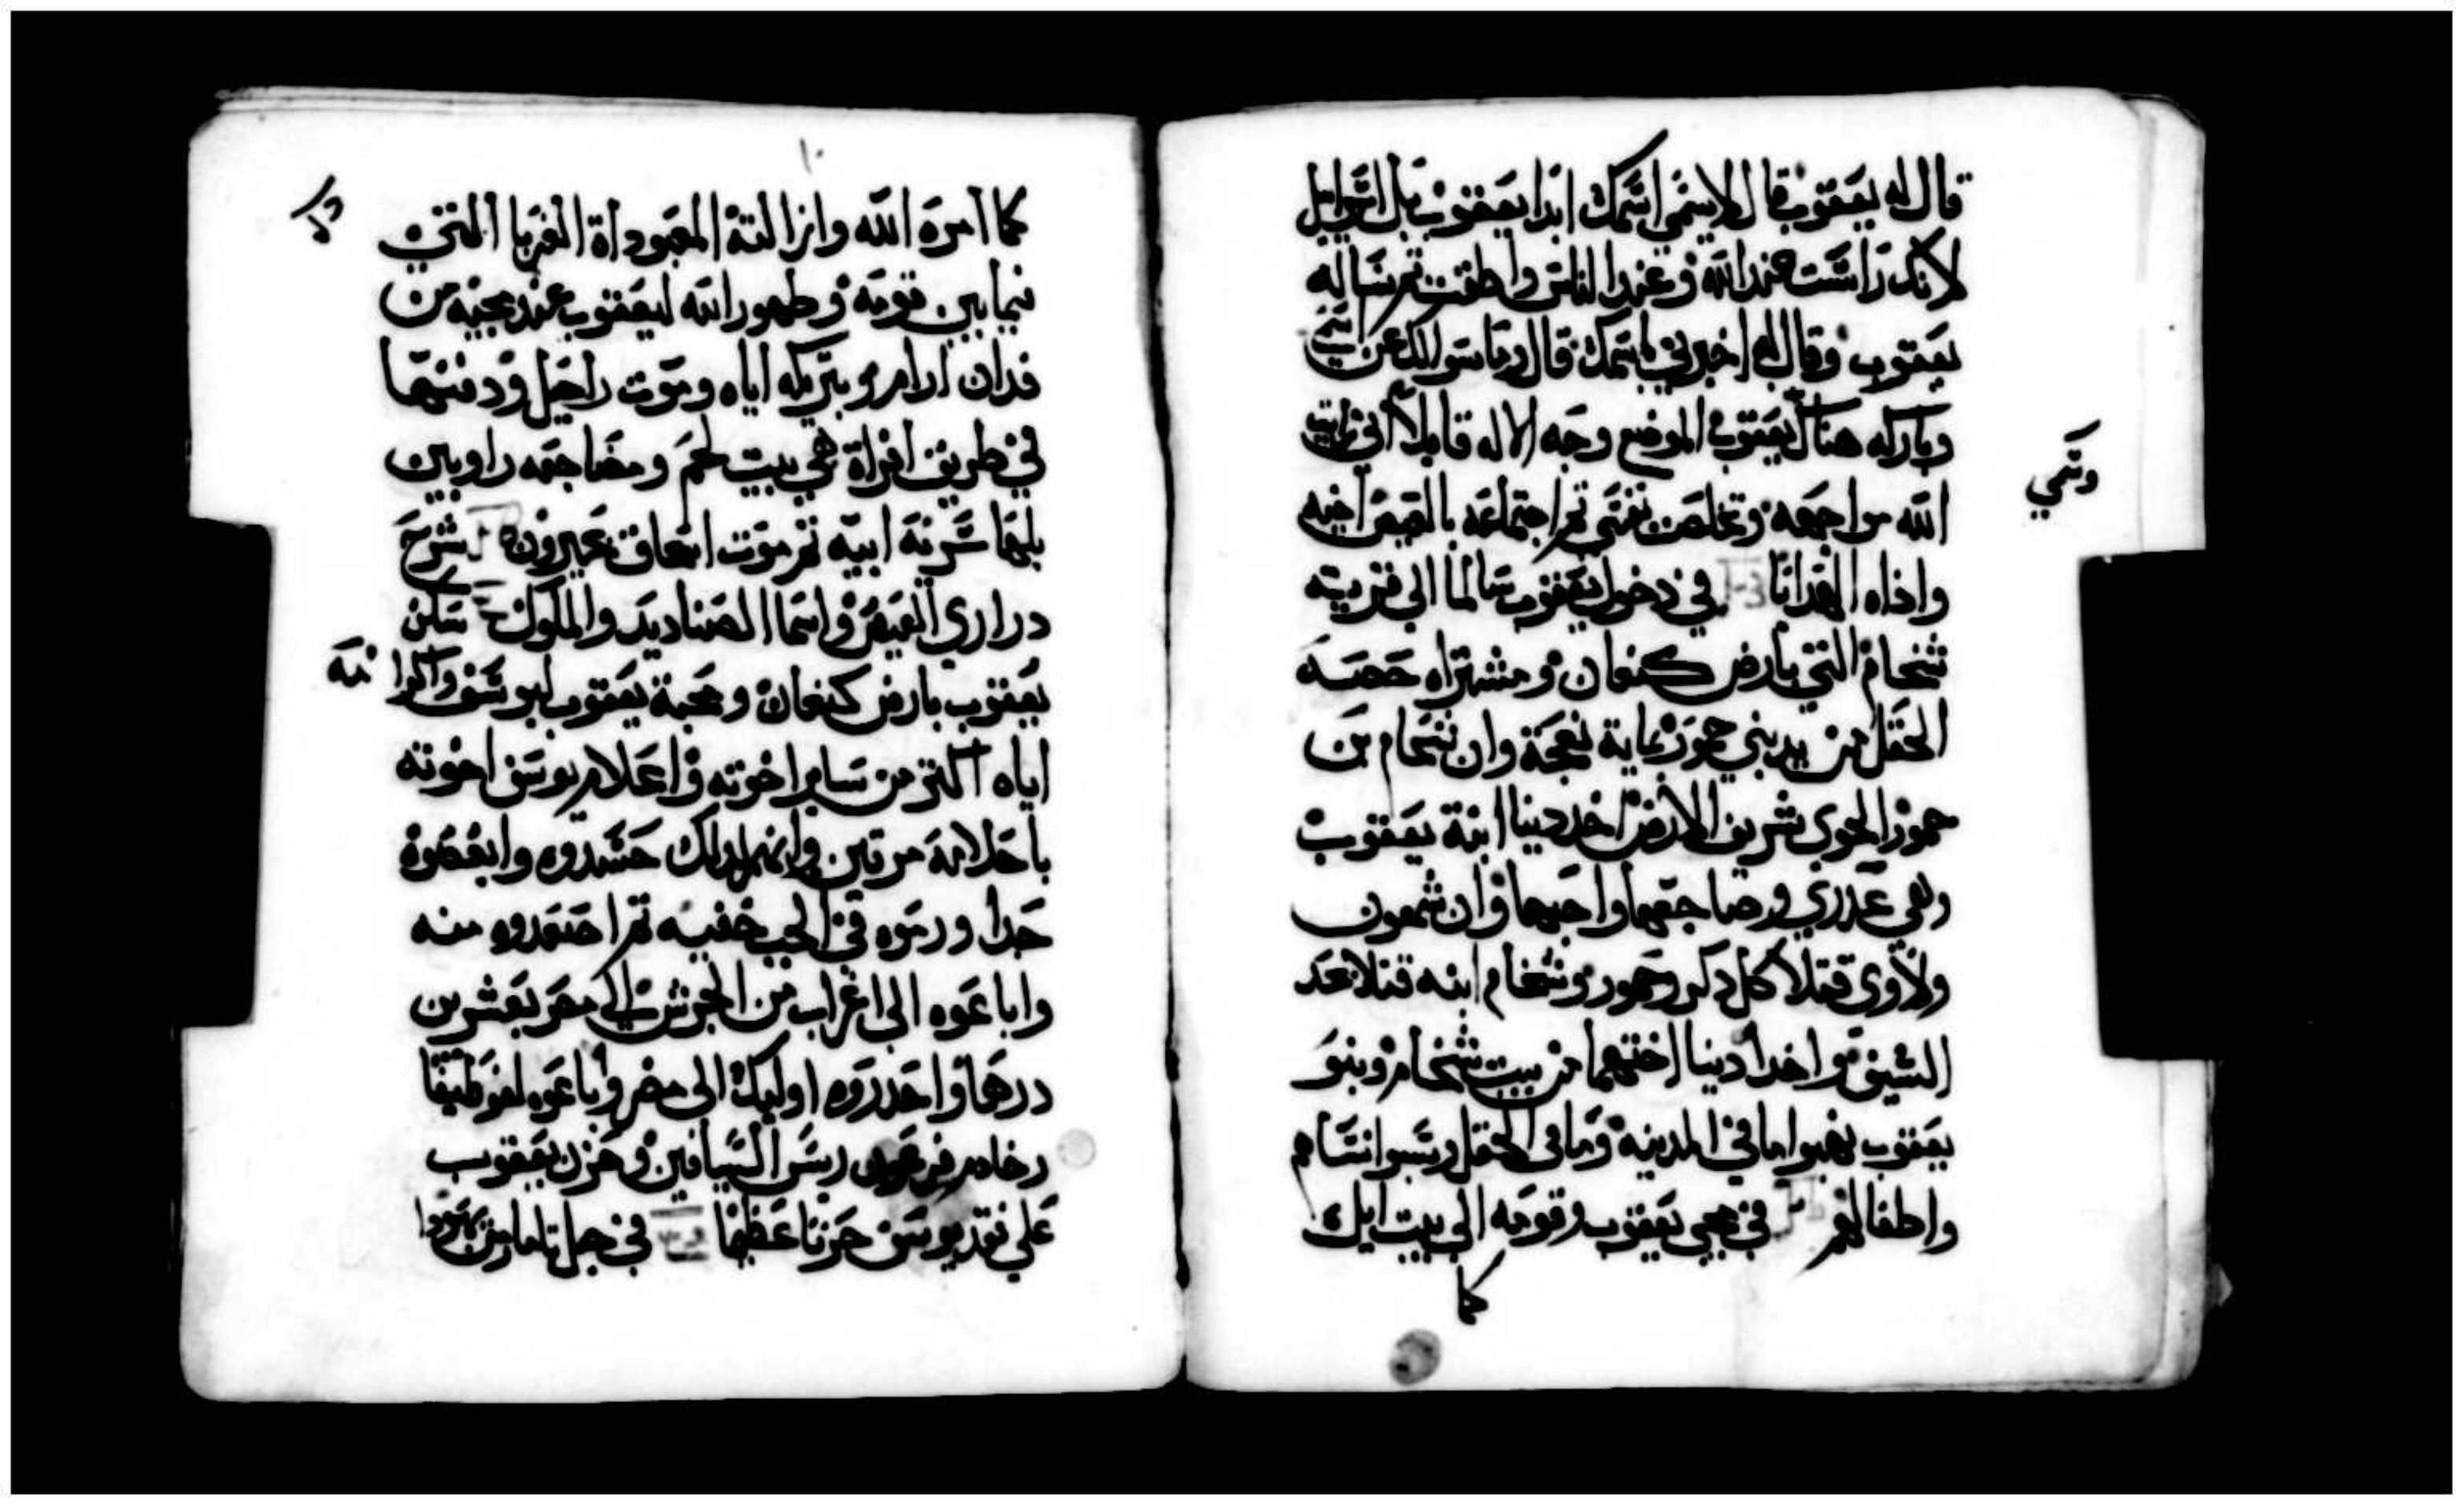 قال له يعقوب قال لا يسمى اسمك ابدا يعقوب بل اسرايل
لانك راسست عند الله وعند الناس واطقت ثم ساله
يعقوب وقال له اخبرني باسمك قال وما سوالك عن اسمي
وباركه هناك يعقوب الموضع وجه الاله قايلا اني رايت
وسمي
الله مواجهه وتخلصت نفسي ثم اجتماعه بالعيص اخيه
واخذاه الهدايا في دخول يعقوب سالما الى قريته
شخام التي بارض كنعان ومشتراه حصه
الحقل من يد بني حمور بماية نعجة وان شخام بن
حمور الحوى شريف الارض اخد دينا ابنة يعقوب
وهي عدري وضاجعها واحبها وان شمعون
ولاوى قتلا كل دكر وحمور وشخام ابنه قتلا بحد
السيف واخدا دينا اختهما من بيت شخام وبنو
يعقوب نهبوا ما في المدينه وما في الحقل وسبوا نساهم
واطفالهم في مجي يعقوب وقومه الى بيت ايل
كما
كما امره الله وازالته المعبوداة الغربا التي
فيما بين قومه وظهور الله ليعقوب عند مجيه من
فدان ارام وتبريكه اياه وموت راحيل ودفنها
في طريق افراة هي بيت لحم ومضاجعه راوبين
بلها سرية ابيه ثم موت اسحاق بحبرون شرح
دراري العيص واسما الصناديد والملوك سكن
يعقوب بارض كنعان ومحبة يعقوب ليوسف واكرا
مه
اياه اكتر من ساير اخوته واعلام يوسف اخوته
باحلامه مرتين وانهم لدلك حسدوه وابغضوه
جدا ورموه في الجب خفيه ثم اصعدوه منه
واباعوه الى اعراب من الجرش الى مصر بعشرين
درهما واحدروه اوليك الى مصر واباعوه لفوطيفا
رخادم فرعون ريس السيافين وحزن يعقوب
على فقد يوسف حزنا عظيما في حبل تامار من يهودا